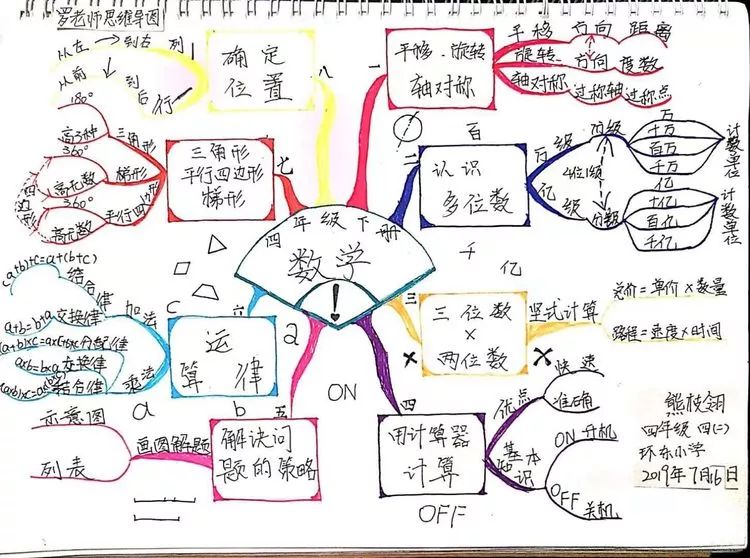 罗老师思维导图
四年级下册
数学
!
一
平移、旋转
轴对称
平移 方向 距离
旋转 方向 度数
轴对称 过称轴 过称点
二
认识
多位数
百
千
亿
万级
亿级
4位1级
万
十万
百万
千万
计数单位
亿
十亿
百亿
千亿
计数单位
三
三位数
×
两位数
竖式计算
总价=单价×数量
路程=速度×时间
四
用计算器
计算
优点
快速
准确
基本知识
ON 开机
OFF 关机
ON
OFF
五
解决问
题的策略
画图解题
示意图
列表
六
运
算律
加法
结合律
(a+b)+c=a+(b+c)
a+b=b+a交换律
乘法
分配律
a×b=b×a交换律
结合律
a
b
c
a
七
三角形
平行四边形
梯形
三角形
180°
高3种
梯形
360°
高无数
平行四边形
360°
高无数
四边形
八
确定
位置
从左→到右 列
从前→到后 行
熊枝翎
四年级 四(二)
环东小学
2019年7月16日